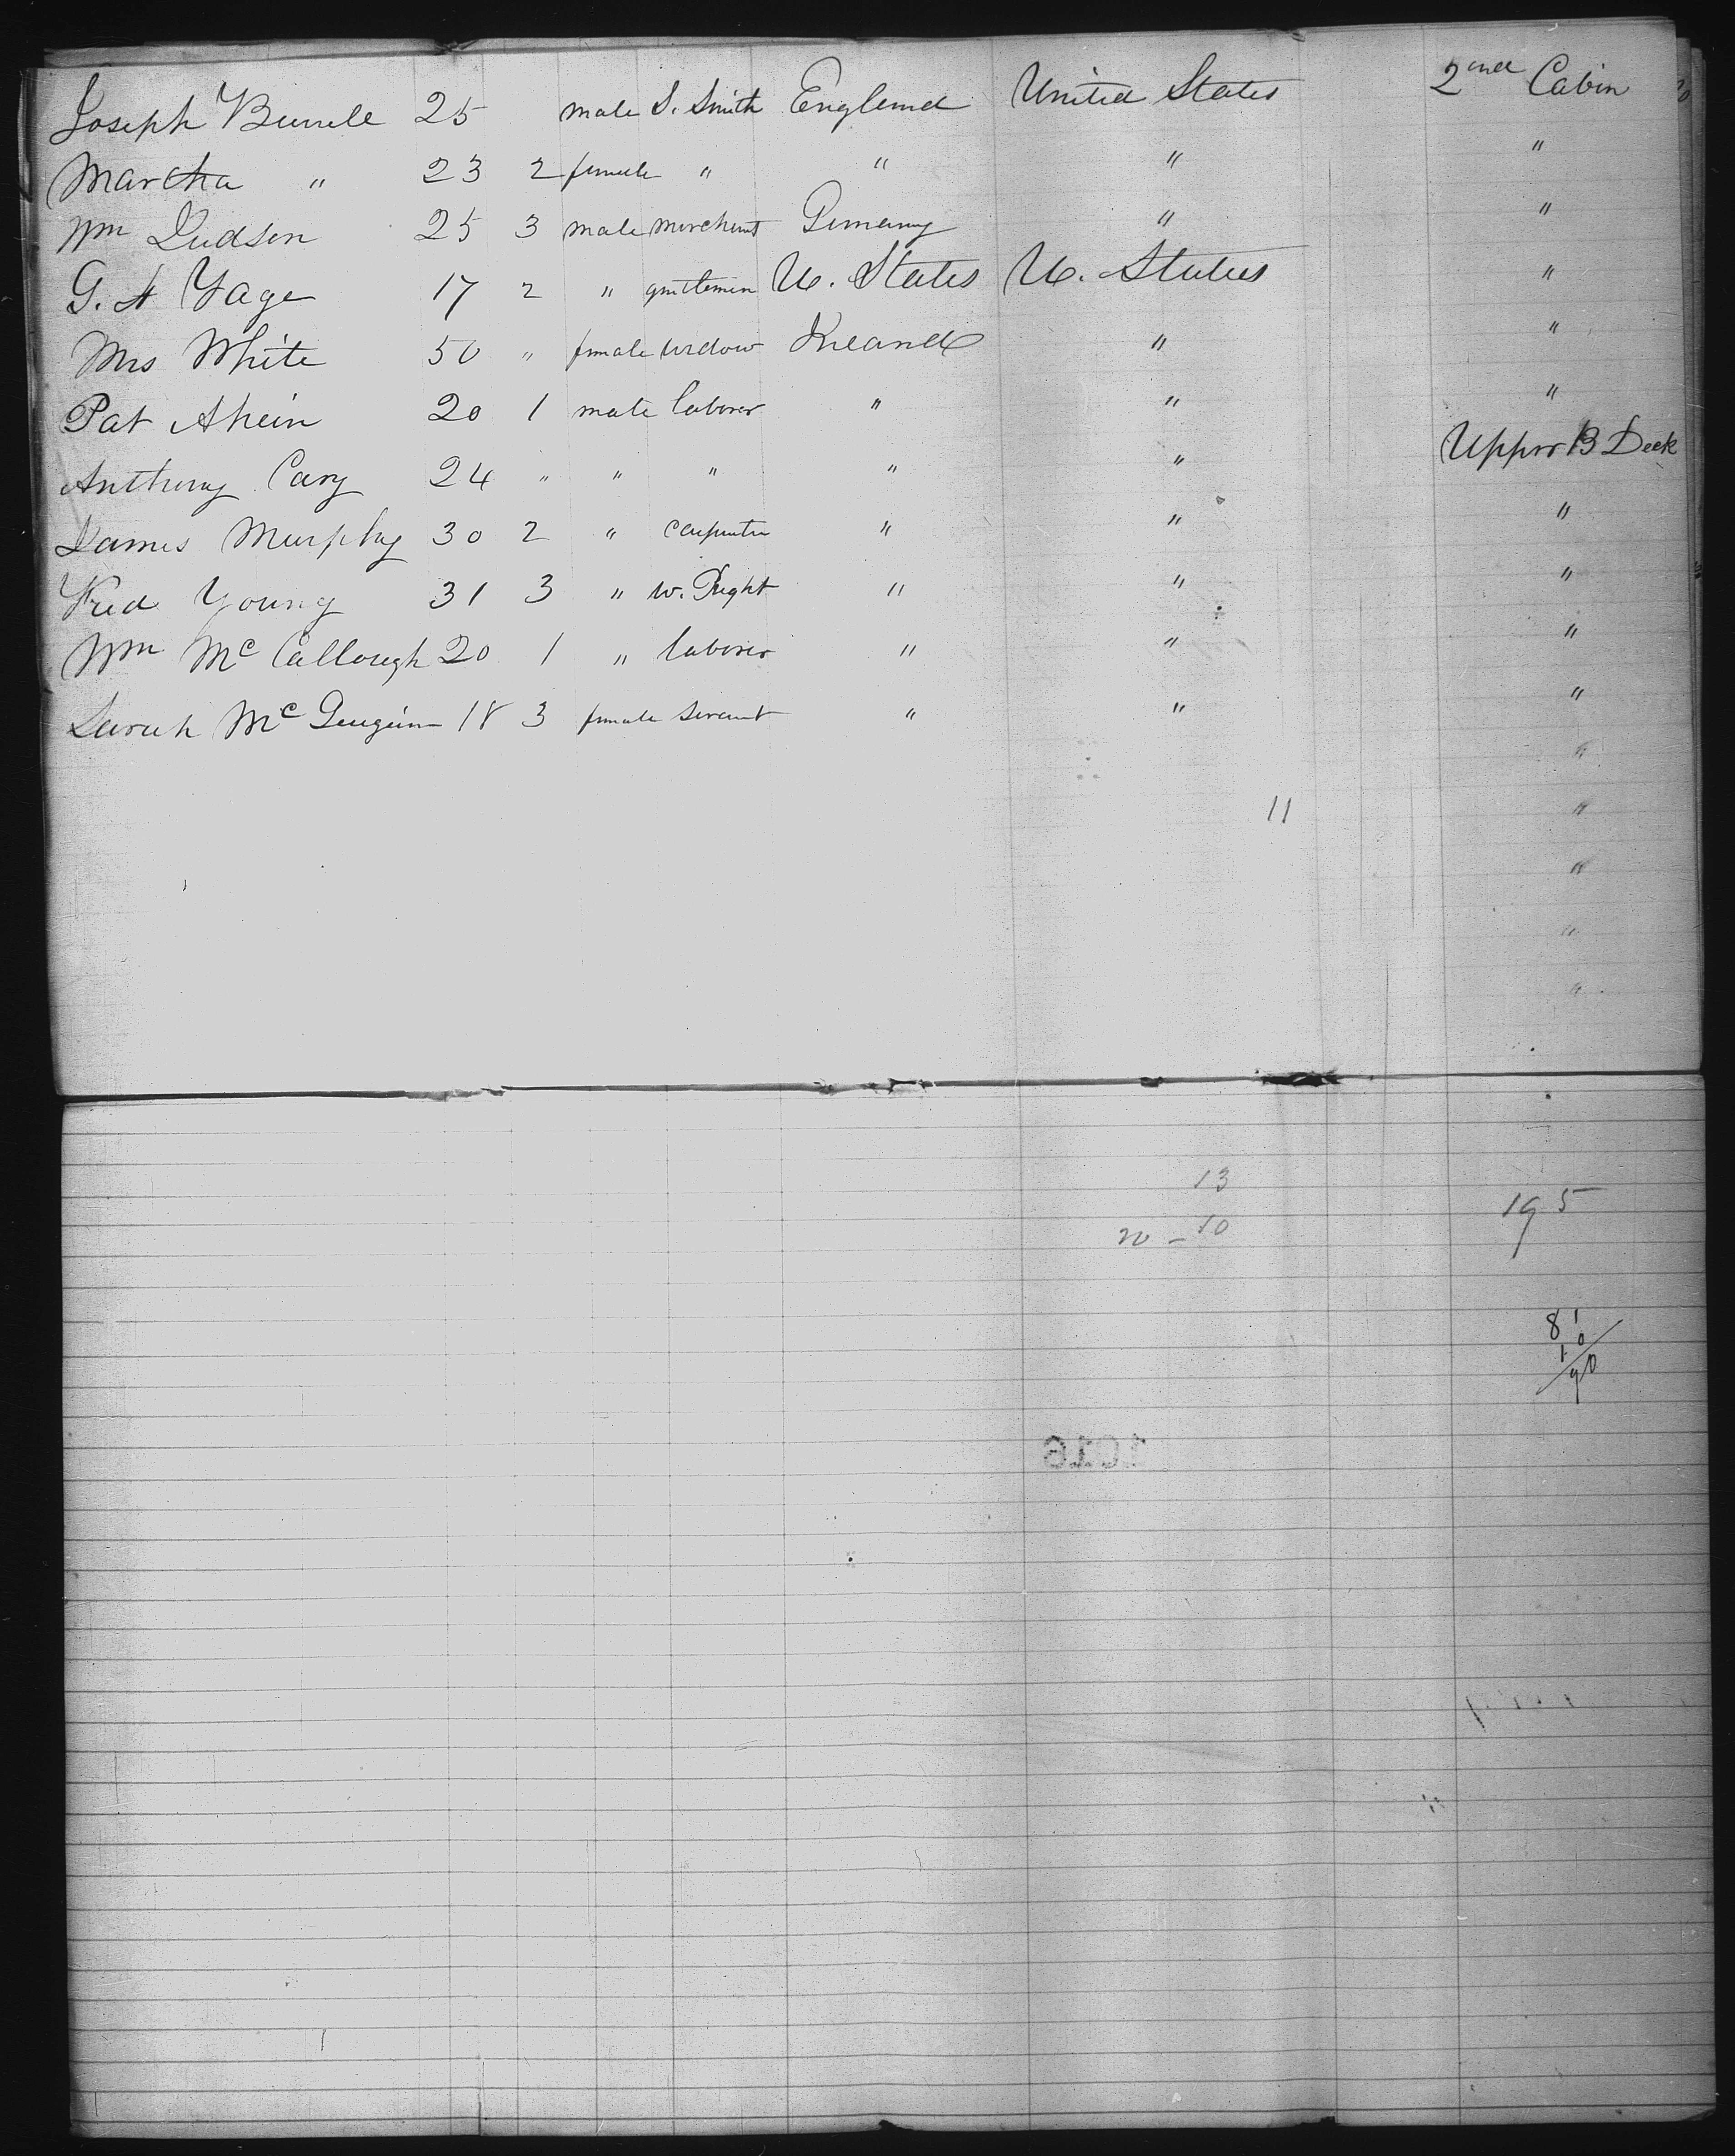 Joseph Burrell 25 male S. Smith England United States 2nd Cabin
Martha " 23 2 female " " " "
Wm Judson 25 3 male merchant Germany " "
G. A Gage 17 2 " gentleman U. States U. States "
Mrs White 50 " female widow Ireland " "
Pat Ahein 20 1 male laborer " " "
Anthony Cary 24 " " " " " Upper B Deck
James Murphy 30 2 " carpenter " " "
Fred Young 31 3 " W. Right " " "
Wm McCallough 20 1 " laborer " " "
Sarah Mc 18 3 female servant " " "
"
11 "
"
"
"
13
20 - 10
195
81
10
90
1016